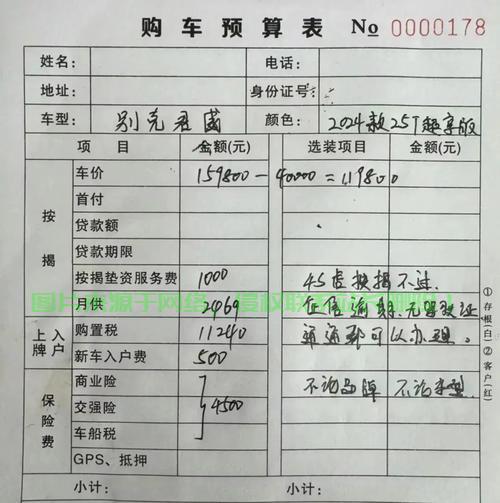 购车预算表 No 0000178
姓名： 电话：
地址： 身份证号：
车型： 别克君威 颜色： 2024款25T超享版
项目 金额(元) 选装项目 金额(元)
按揭 车价 159800-40000=119800
首付
贷款额
贷款期限
按揭垫资服务费 1000 4S店按揭不过.
月供 2469 征信逾期.无驾驶证
入户上牌 购置税 11240 通通都可以办理。
新车入户费 500
保险费 商业险 不论品牌 不论车型
交强险 4500
车船税
GPS、抵押
小计： 小计：
①存根(白)②客户(红)